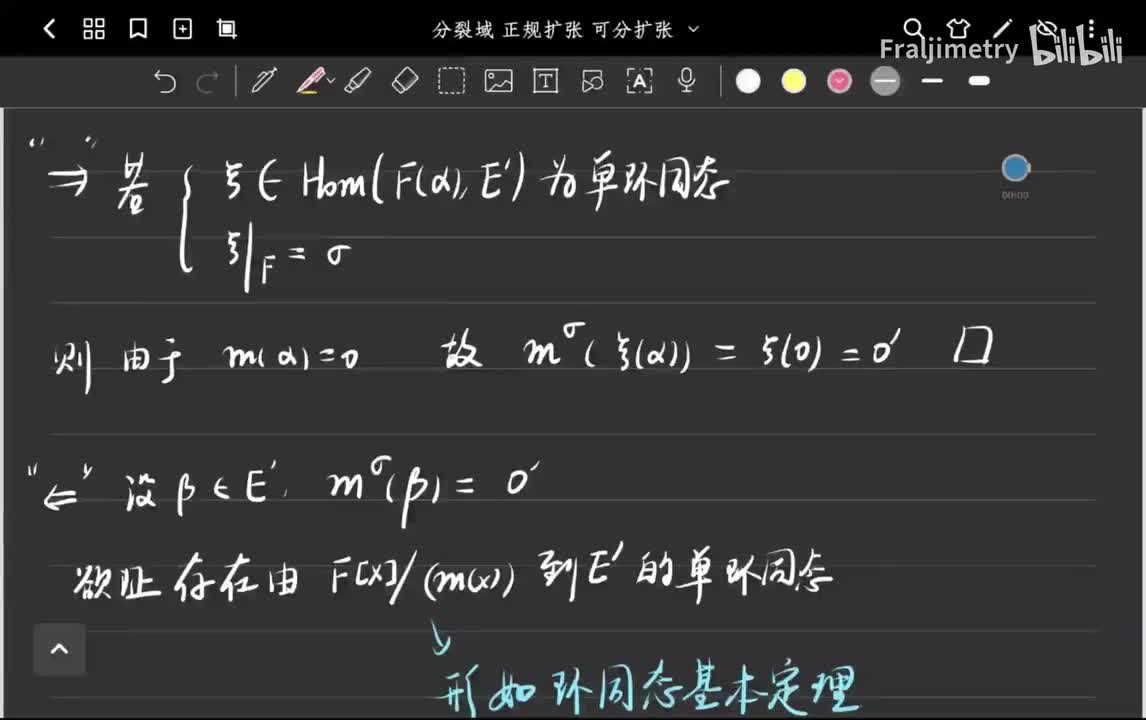 分裂域 正规扩张 可分扩张
Fraljimetry bilibili
00:00
"⇒" 若 { ξ ∈ Hom(F(α), E′) 为单环同态
ξ|_F = σ
则 由于 m(α)=0 故 m^σ(ξ(α)) = ξ(0) = 0′ □
"⇐" 设 β ∈ E′, m^σ(β) = 0′
欲证 存在由 F[x]/(m(x)) 到 E′ 的单环同态
↘
形如环同态基本定理